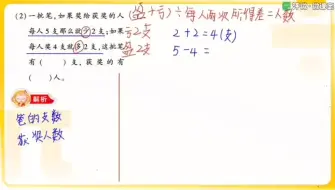 (2)一批笔,如果奖给获奖的人
每人5支那么就少2支;如果
每人奖4支就多2支,这批笔
有( )支,获奖的有
( )人。
(盈+亏)÷每人两次所得差=人数
亏2支
盈2支
2+2=4(支)
5-4=
解析
笔的支数
获奖人数